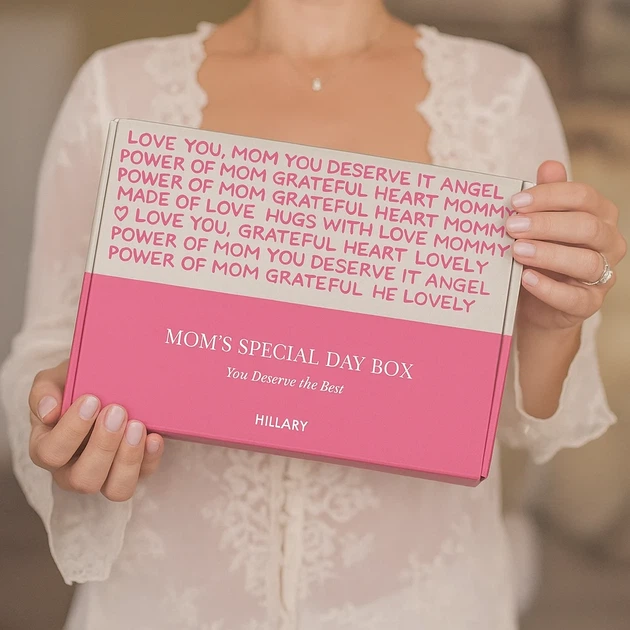 LOVE YOU, MOM YOU DESERVE IT ANGEL
POWER OF MOM GRATEFUL HEART MOMMY
POWER OF MOM GRATEFUL HEART MOMM
MADE OF LOVE HUGS WITH LOVE MOMMY
♡ LOVE YOU, GRATEFUL HEART LOVELY
POWER OF MOM YOU DESERVE IT ANGEL
POWER OF MOM GRATEFUL HE LOVELY
MOM'S SPECIAL DAY BOX
You Deserve the Best
HILLARY